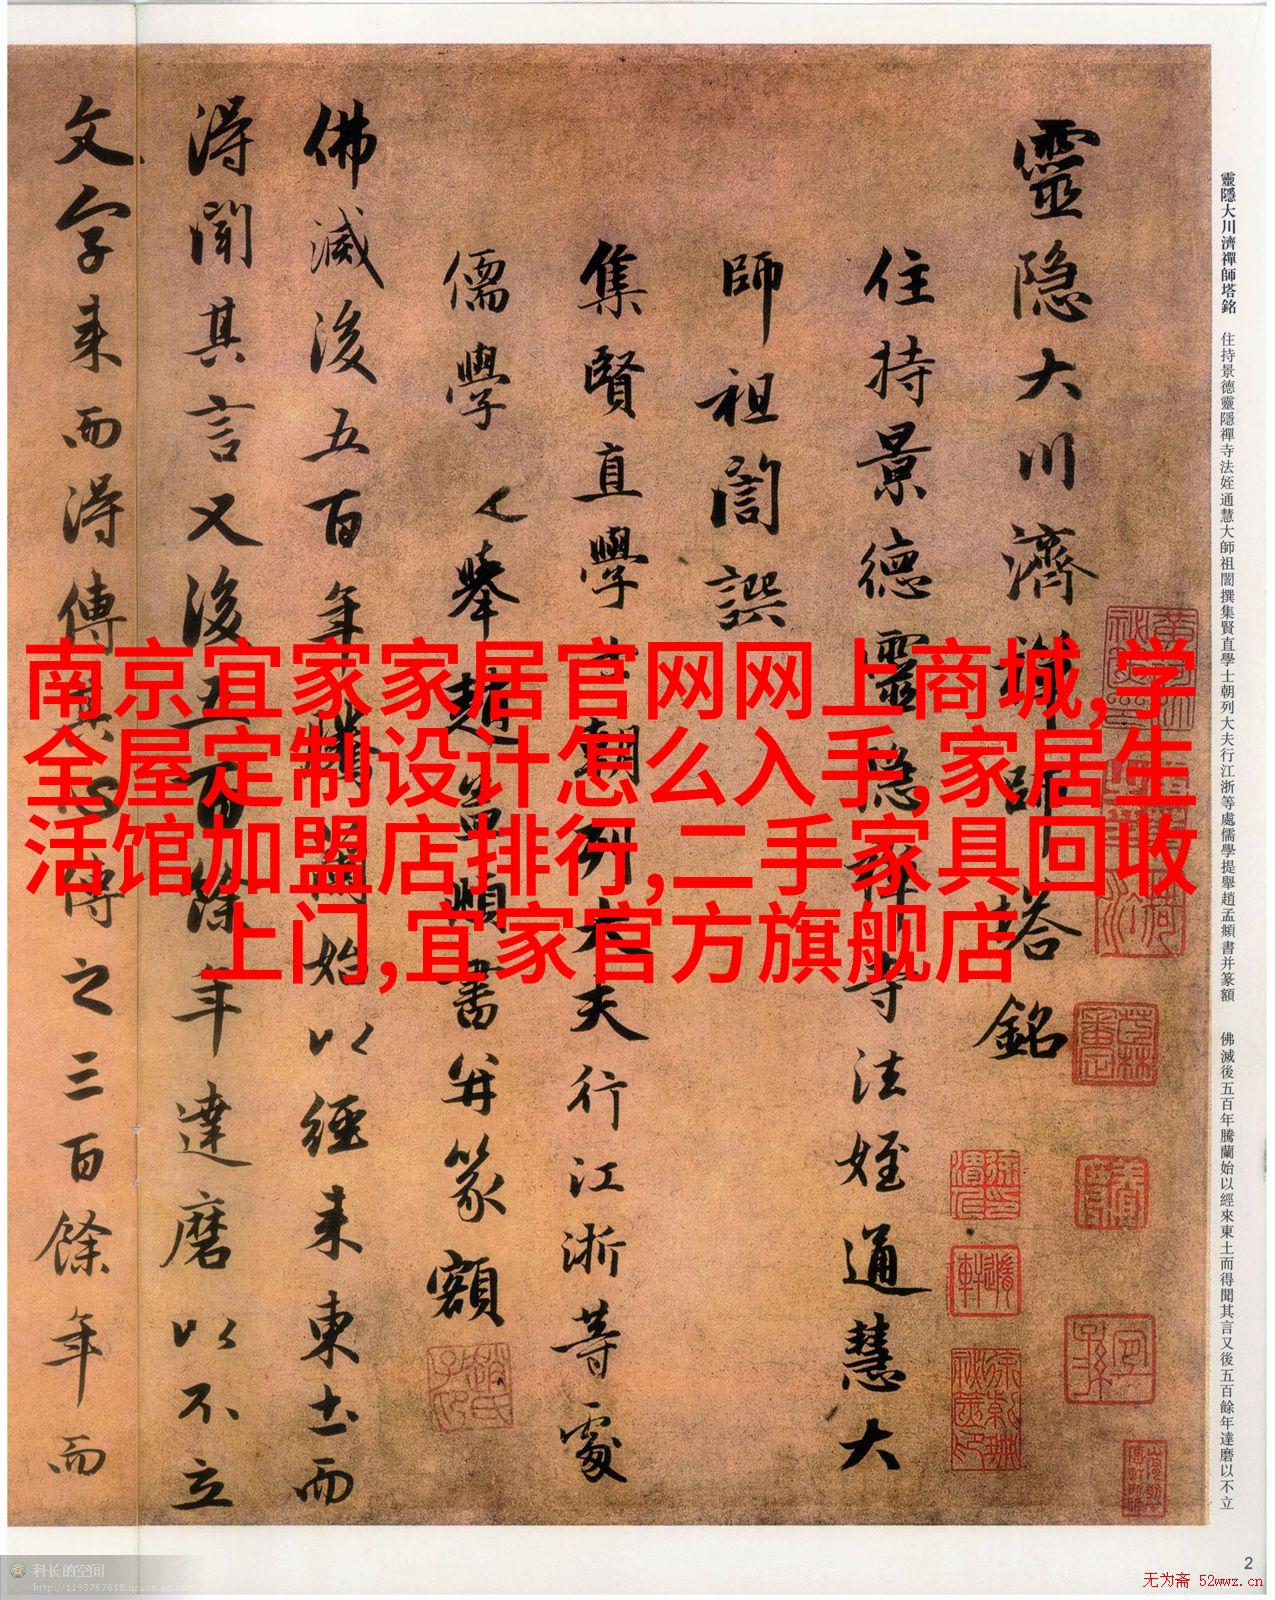 靈隱大川濟禪師塔銘
住持景德靈隱禪寺法姪通慧大
師祖誾譔
集賢直學士朝列大夫行江浙等處
儒學提舉趙孟頫書并篆額
佛滅後五百年騰蘭始以經来東土而
得聞其言又後五百餘年達磨以不立
文字来而得傳其心傳之三百餘年而
靈隱大川濟禪師塔銘 住持景德靈隱禪寺法姪通慧大師祖誾撰集賢直學士朝列大夫行江浙等處儒學提舉趙孟頫書并篆額 佛滅後五百年騰蘭始以經來東土而得聞其言又後五百餘年達磨以不立
南京宜家家居官网网上商城,学
全屋定制设计怎么入手,家居生
活馆加盟店排行,二手家具回收
上门,宜家官方旗舰店
2
科长的空间
http://1193767618.qzone.qq.com
无为斋 52wwz.cn